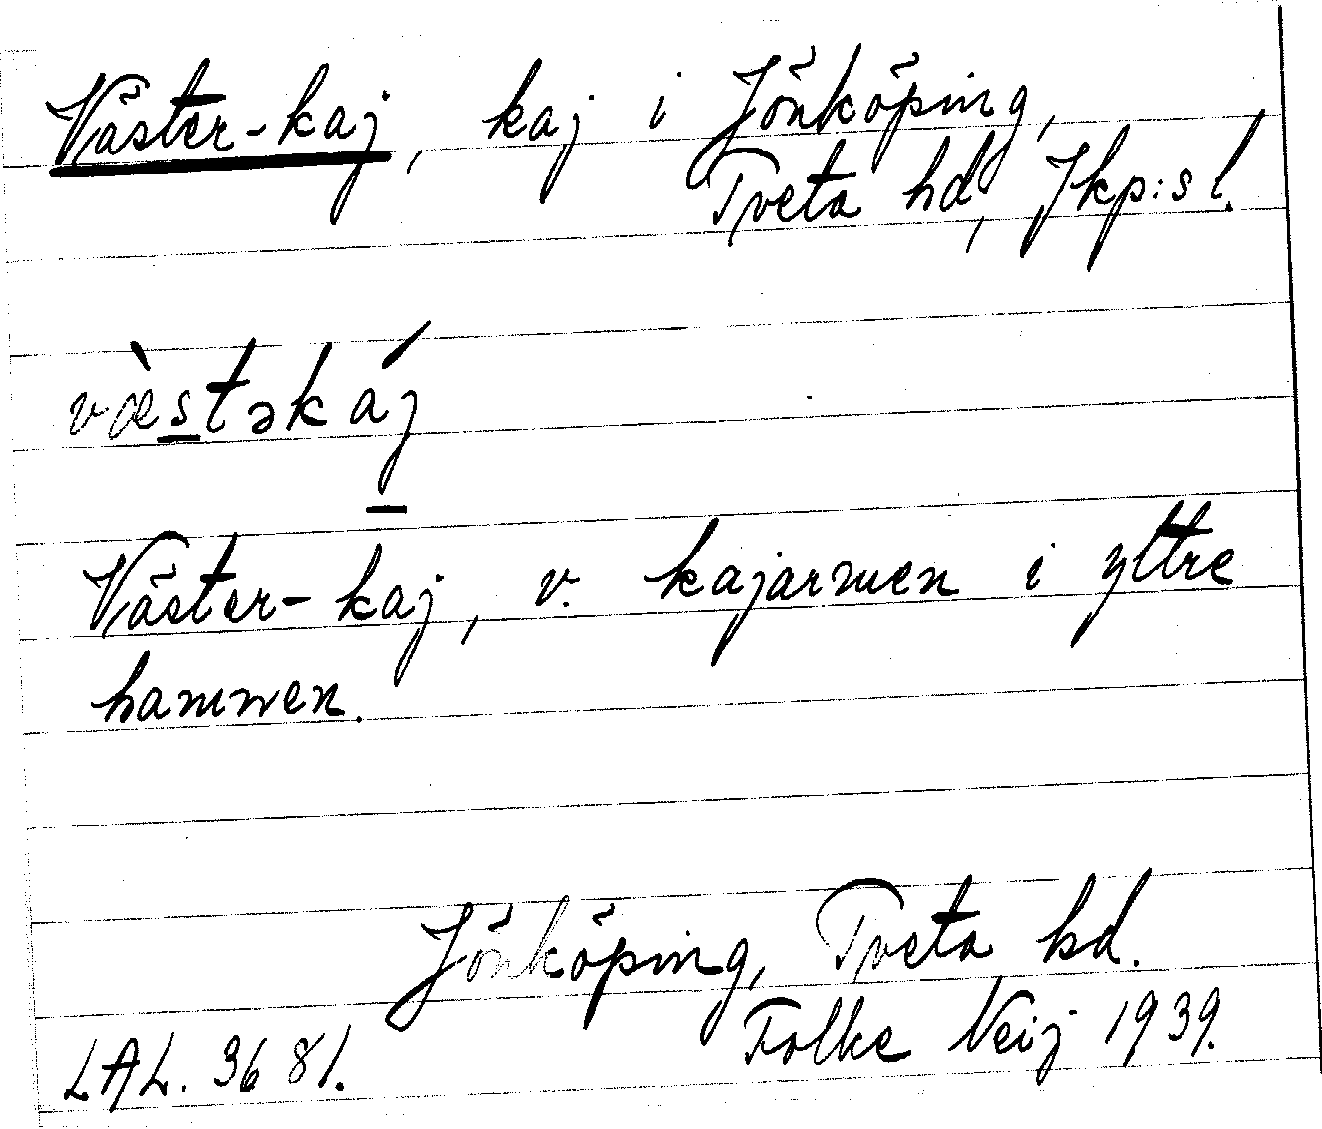 Väster-kaj, kaj i Jönköping,
Tveta hd, Jkp:s l.
væ̀stəkáj
Väster-kaj, v. kajarmen i yttre
hamnen.
Jönköping, Tveta hd.
Folke Neij 1939.
LAL. 3681.